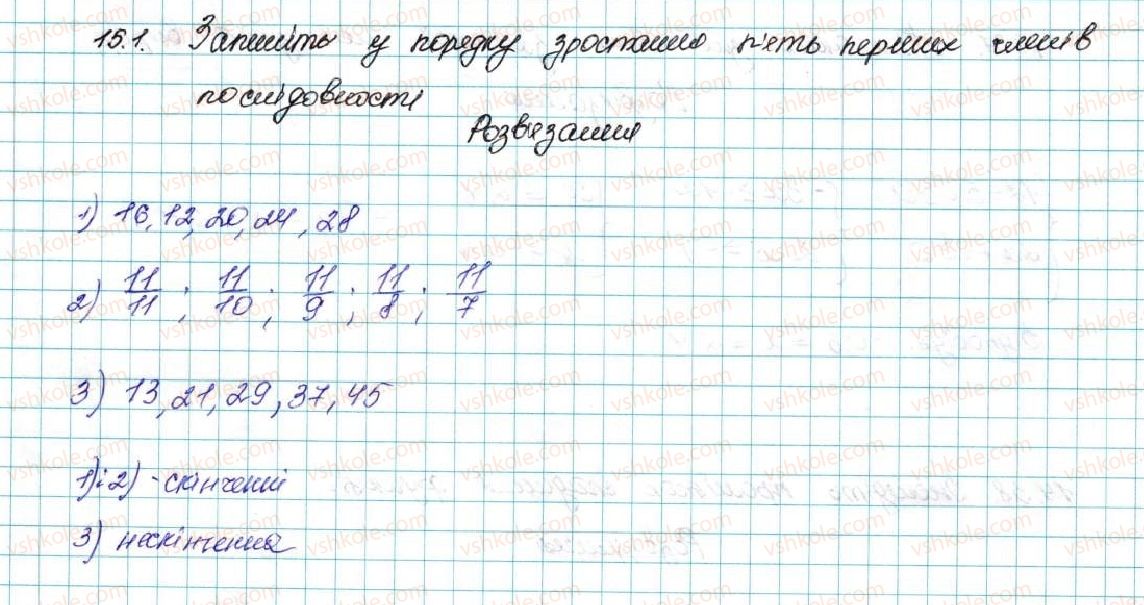 15.1. Запишіть у порядку зростанню п'ять перших членів
послідовності
Розв'язання
1) 16, 12, 20, 24, 28
2) 11/11; 11/10; 11/9; 11/8; 11/7
3) 13, 21, 29, 37, 45
1) і 2) - скінченні
3) нескінченна